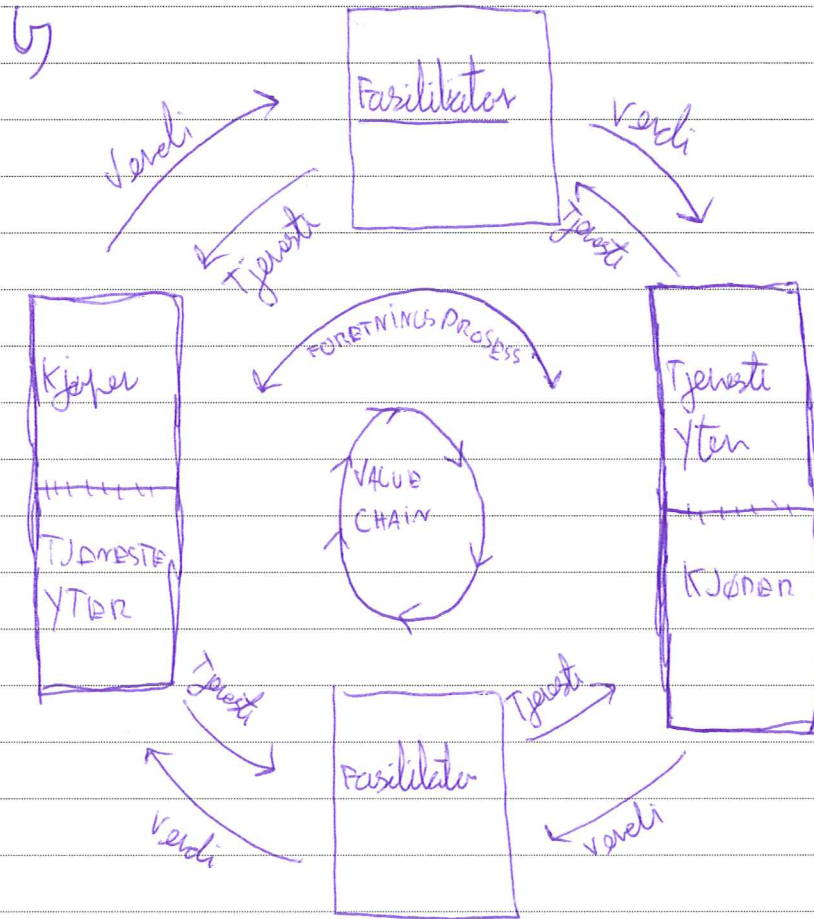 5
Fasilitator
Verdi
Verdi
Tjeneste
Tjeneste
FORETNINGSPROSESS
Kjøper
Tjeneste
Yter
VALUE
CHAIN
TJENESTE
YTER
KJØPER
Tjeneste
Tjeneste
Fasilitator
Verdi
Verdi